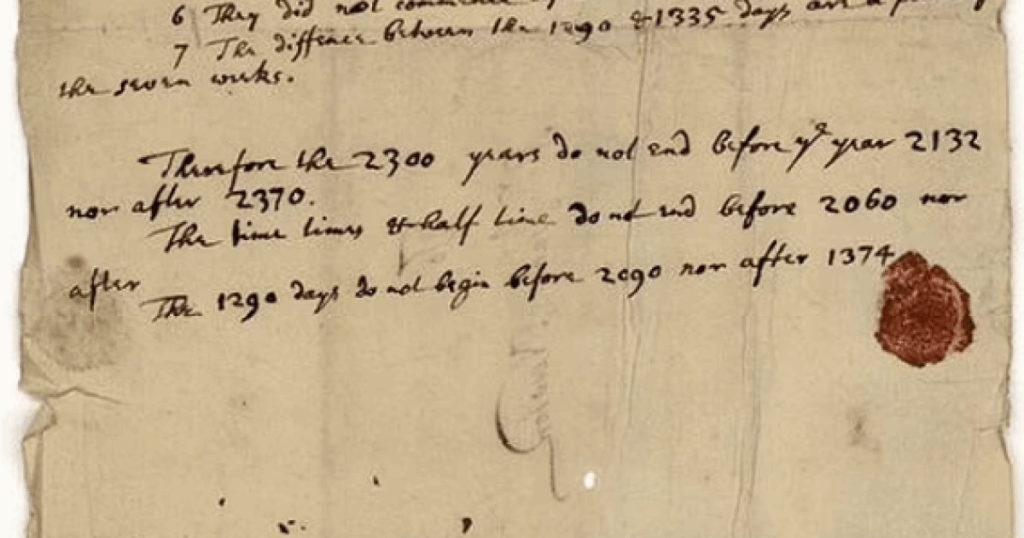 6 They did not commence
7 The diffence between the 1290 & 1335 days are a
the seven weeks.
Therefore the 2300 years do not end before yᵉ year 2132
nor after 2370.
The time times & half time do not end before 2060 nor
after
The 1290 days do not begin before 2090 nor after 1374